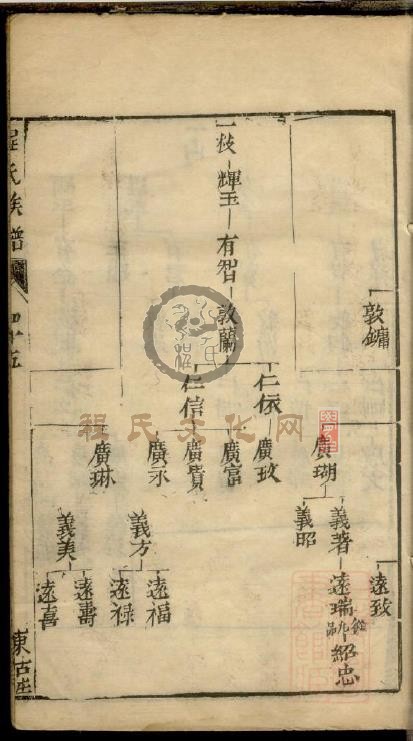 敦鏞
遠致
廣瑚
義著
遠瑞
紹忠
義昭
一枝
輝玉
有智
敦蘭
仁依
廣玫
廣富
仁信
廣賓
廣永
義方
遠福
遠祿
廣琳
義美
遠壽
遠喜
程氏族譜
四十五
東古
程氏文化网